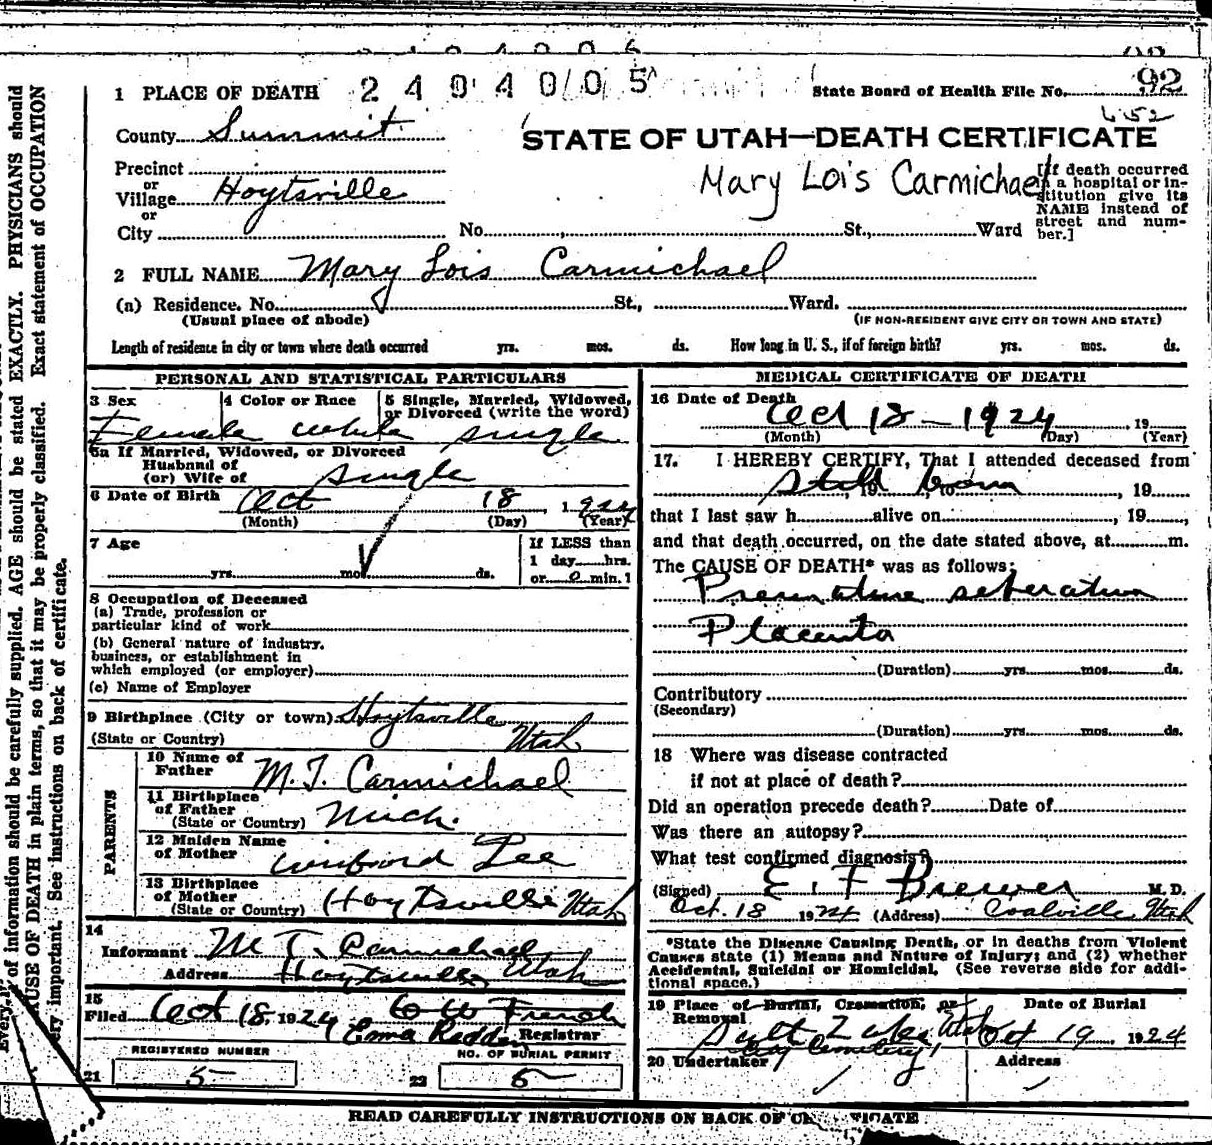 92
1 PLACE OF DEATH 2404005 State Board of Health File No. 92
652
County Summit
STATE OF UTAH—DEATH CERTIFICATE
Precinct
or
Village Hoytsville
or
City No. St., Ward
Mary Lois Carmichael
[If death occurred
in a hospital or in-
stitution give its
NAME instead of
street and num-
ber.]
2 FULL NAME Mary Lois Carmichael
(a) Residence. No. St., Ward.
(Usual place of abode) (IF NON-RESIDENT GIVE CITY OR TOWN AND STATE)
Length of residence in city or town where death occurred yrs. mos. ds. How long in U. S., if of foreign birth? yrs. mos. ds.
PERSONAL AND STATISTICAL PARTICULARS
3 Sex 4 Color or Race 5 Single, Married, Widowed,
or Divorced (write the word)
Female white single
5a If Married, Widowed, or Divorced
Husband of
(or) Wife of single
6 Date of Birth Oct 18, 1924
(Month) (Day) (Year)
7 Age If LESS than
1 day hrs.
yrs. mos. ds. or 0 min.?
8 Occupation of Deceased
(a) Trade, profession or
particular kind of work
(b) General nature of industry,
business, or establishment in
which employed (or employer)
(c) Name of Employer
9 Birthplace (City or town) Hoytsville
(State or Country) Utah
PARENTS
10 Name of
Father M. T. Carmichael
11 Birthplace
of Father
(State or Country) Mich.
12 Maiden Name
of Mother Winifred Lee
13 Birthplace
of Mother
(State or Country) Hoytsville Utah
14
Informant M T. Carmichael
Address Hoytsville, Utah
15
Filed Oct 18, 1924 French
Emma Redden Registrar
REGISTERED NUMBER NO. OF BURIAL PERMIT
21 5 22 5
MEDICAL CERTIFICATE OF DEATH
16 Date of Death
Oct 18 - 1924, 19
(Month) (Day) (Year)
17. I HEREBY CERTIFY, That I attended deceased from
Still born, 19
that I last saw h alive on, 19,
and that death occurred, on the date stated above, at m.
The CAUSE OF DEATH* was as follows:
Premature seperation
Placenta
(Duration) yrs. mos. ds.
Contributory
(Secondary)
(Duration) yrs. mos. ds.
18 Where was disease contracted
if not at place of death?
Did an operation precede death? Date of
Was there an autopsy?
What test confirmed diagnosis?
(Signed) E. F Brewer M. D.
Oct. 18 1924 (Address) Coalville, Utah
*State the Disease Causing Death, or in deaths from Violent
Causes state (1) Means and Nature of Injury; and (2) whether
Accidental, Suicidal or Homicidal. (See reverse side for addi-
tional space.)
19 Place of Burial, Cremation, or Date of Burial
Removal
Salt Lake Utah Oct 19 1924
City Cemetery
20 Undertaker Address
READ CAREFULLY INSTRUCTIONS ON BACK OF
of information should be carefully supplied. AGE should be stated EXACTLY. PHYSICIANS should
CAUSE OF DEATH in plain terms, so that it may be properly classified. Exact statement of OCCUPATION
very important. See instructions on back of certificate.